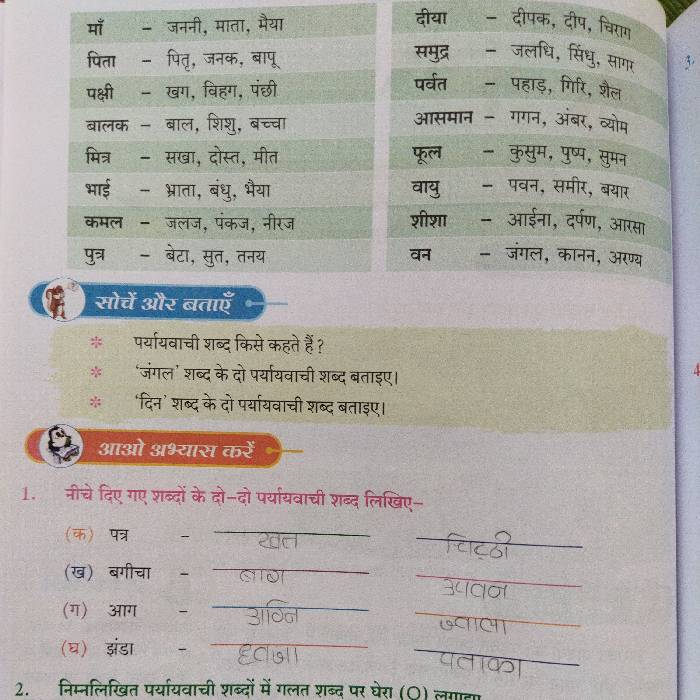 माँ – जननी, माता, मैया
पिता – पितृ, जनक, बापू
पक्षी – खग, विहग, पंछी
बालक – बाल, शिशु, बच्चा
मित्र – सखा, दोस्त, मीत
भाई – भ्राता, बंधु, भैया
कमल – जलज, पंकज, नीरज
पुत्र – बेटा, सुत, तनय
दीया – दीपक, दीप, चिराग
समुद्र – जलधि, सिंधु, सागर
पर्वत – पहाड़, गिरि, शैल
आसमान – गगन, अंबर, व्योम
फूल – कुसुम, पुष्प, सुमन
वायु – पवन, समीर, बयार
शीशा – आईना, दर्पण, आरसा
वन – जंगल, कानन, अरण्य
सोचें और बताएँ
* पर्यायवाची शब्द किसे कहते हैं?
* 'जंगल' शब्द के दो पर्यायवाची शब्द बताइए।
* 'दिन' शब्द के दो पर्यायवाची शब्द बताइए।
आओ अभ्यास करें
1. नीचे दिए गए शब्दों के दो-दो पर्यायवाची शब्द लिखिए–
(क) पत्र – खत चिट्ठी
(ख) बगीचा – बाग उपवन
(ग) आग – अग्नि ज्वाला
(घ) झंडा – ध्वजा पताका
2. निम्नलिखित पर्यायवाची शब्दों में गलत शब्द पर घेरा (O) लगाइए
3.
4